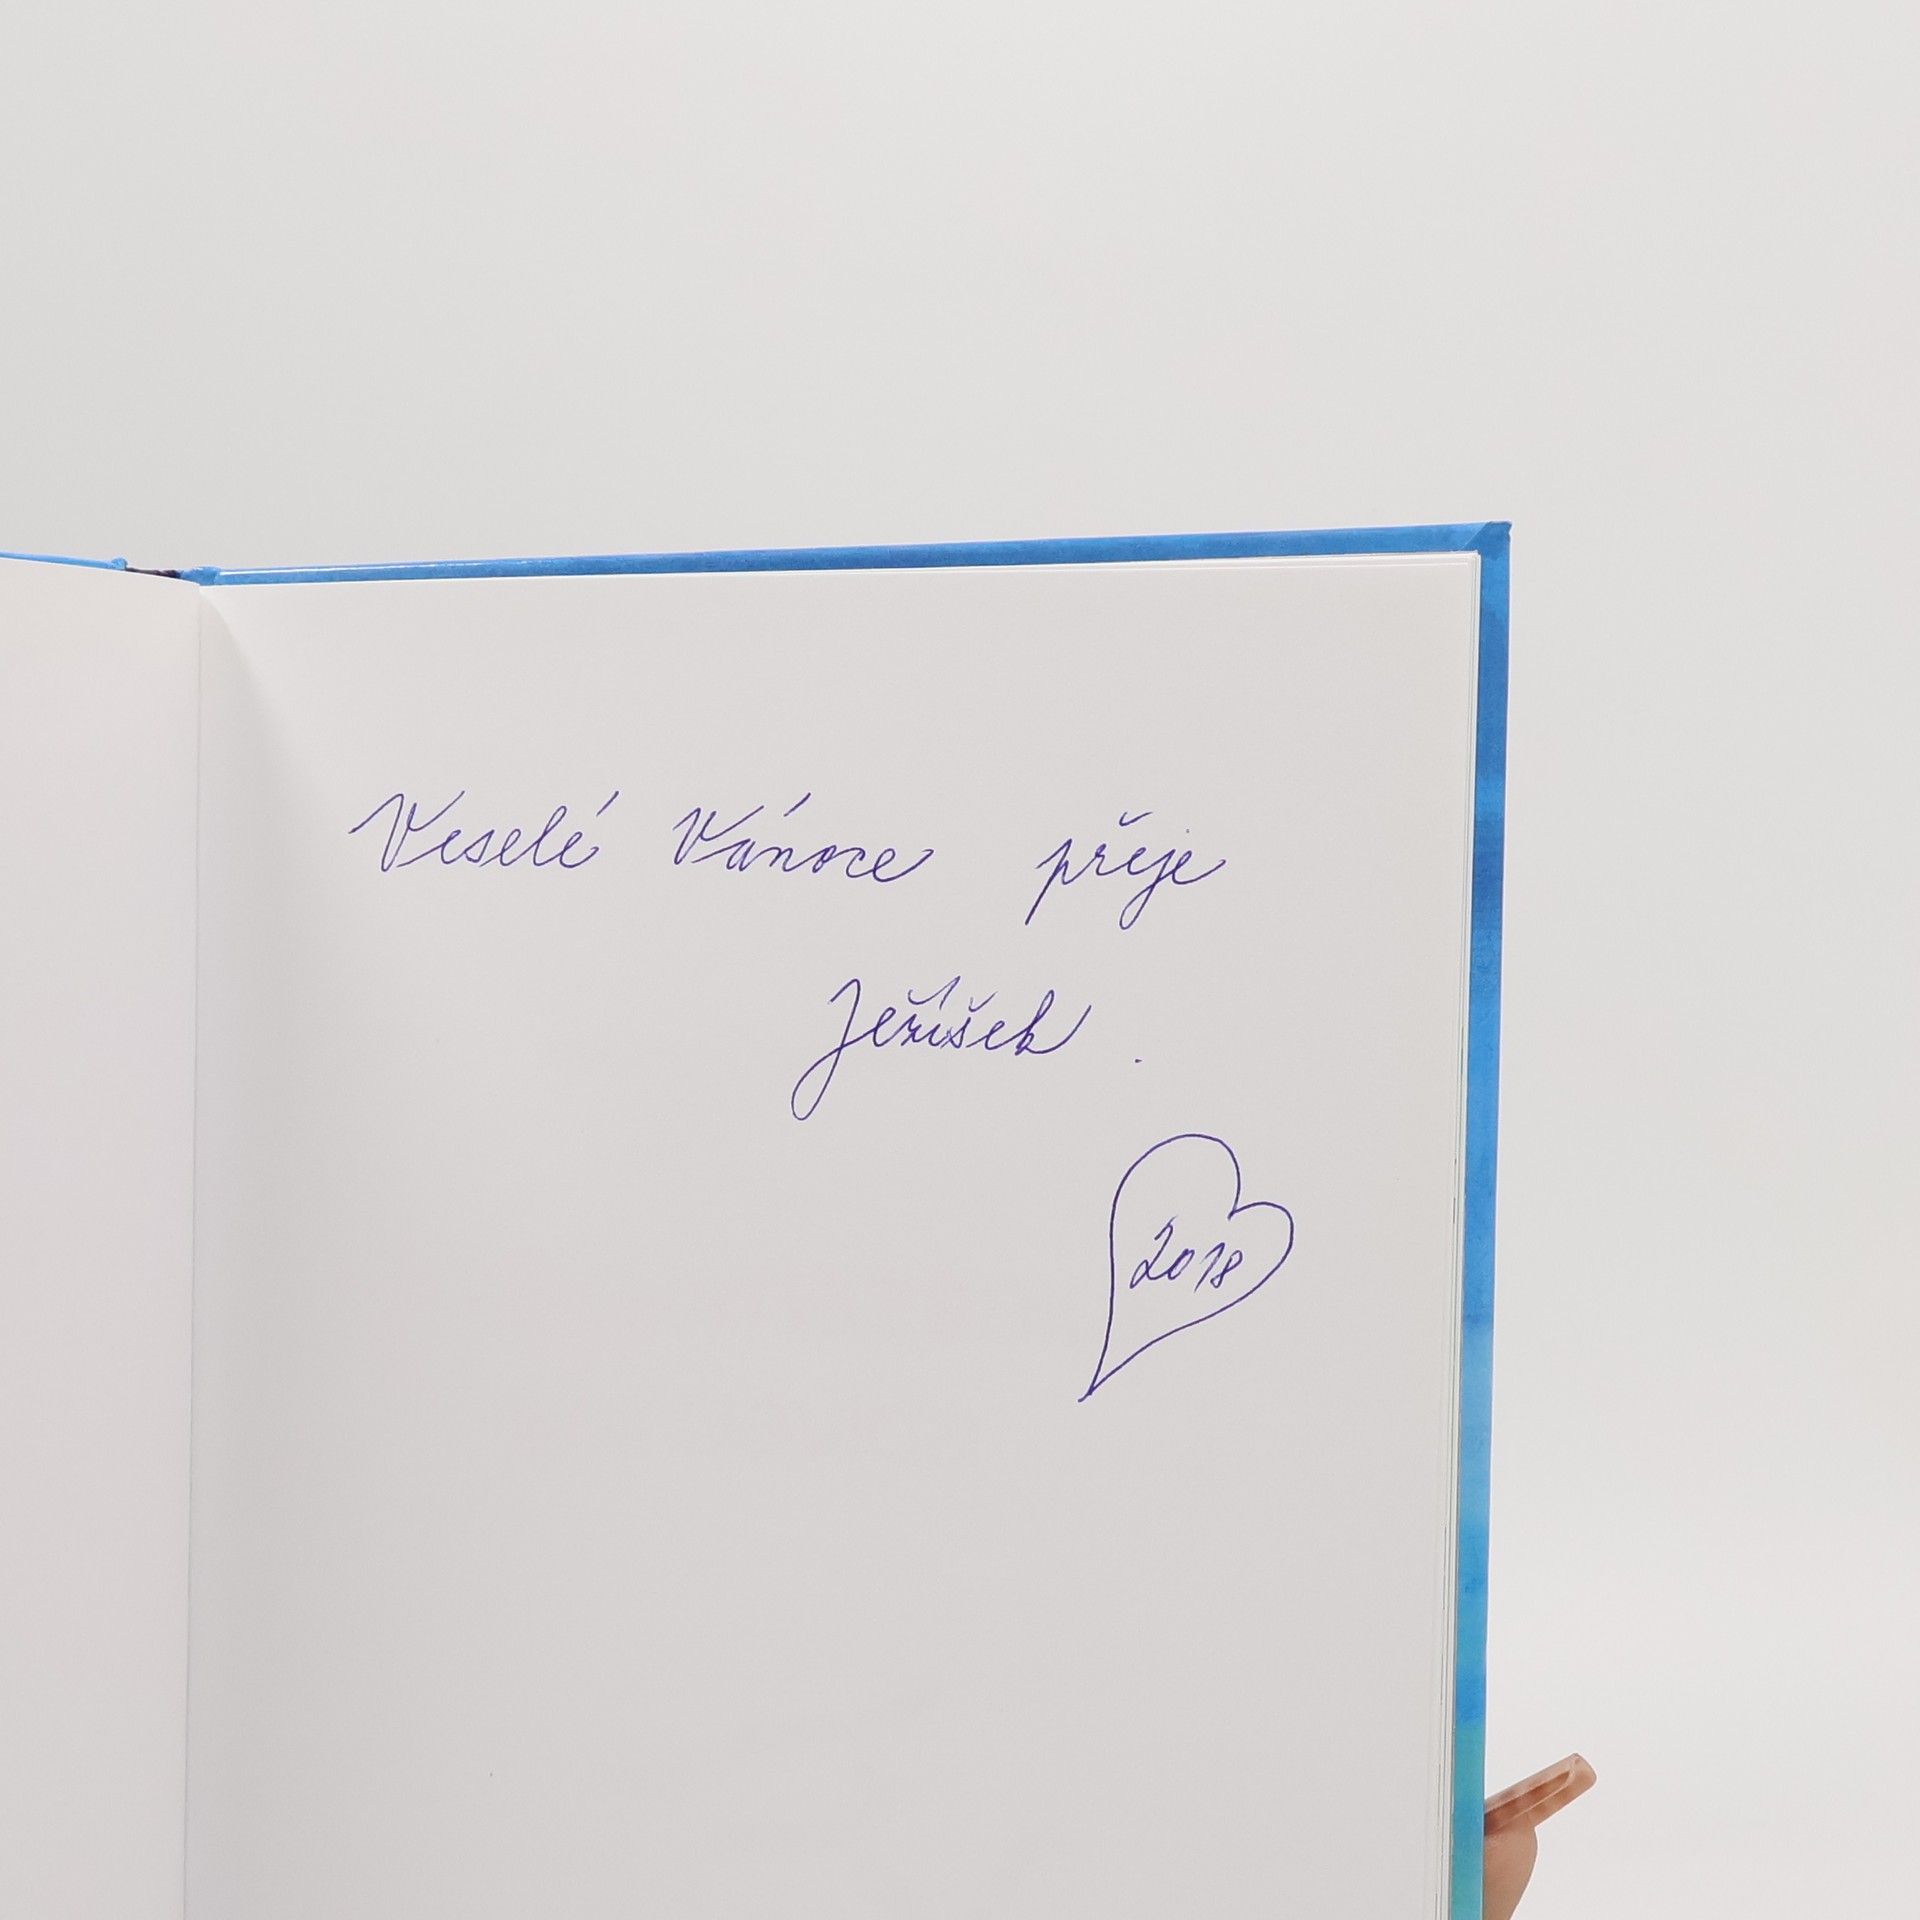 Veselé Vánoce přeje
Ježíšek .
2018